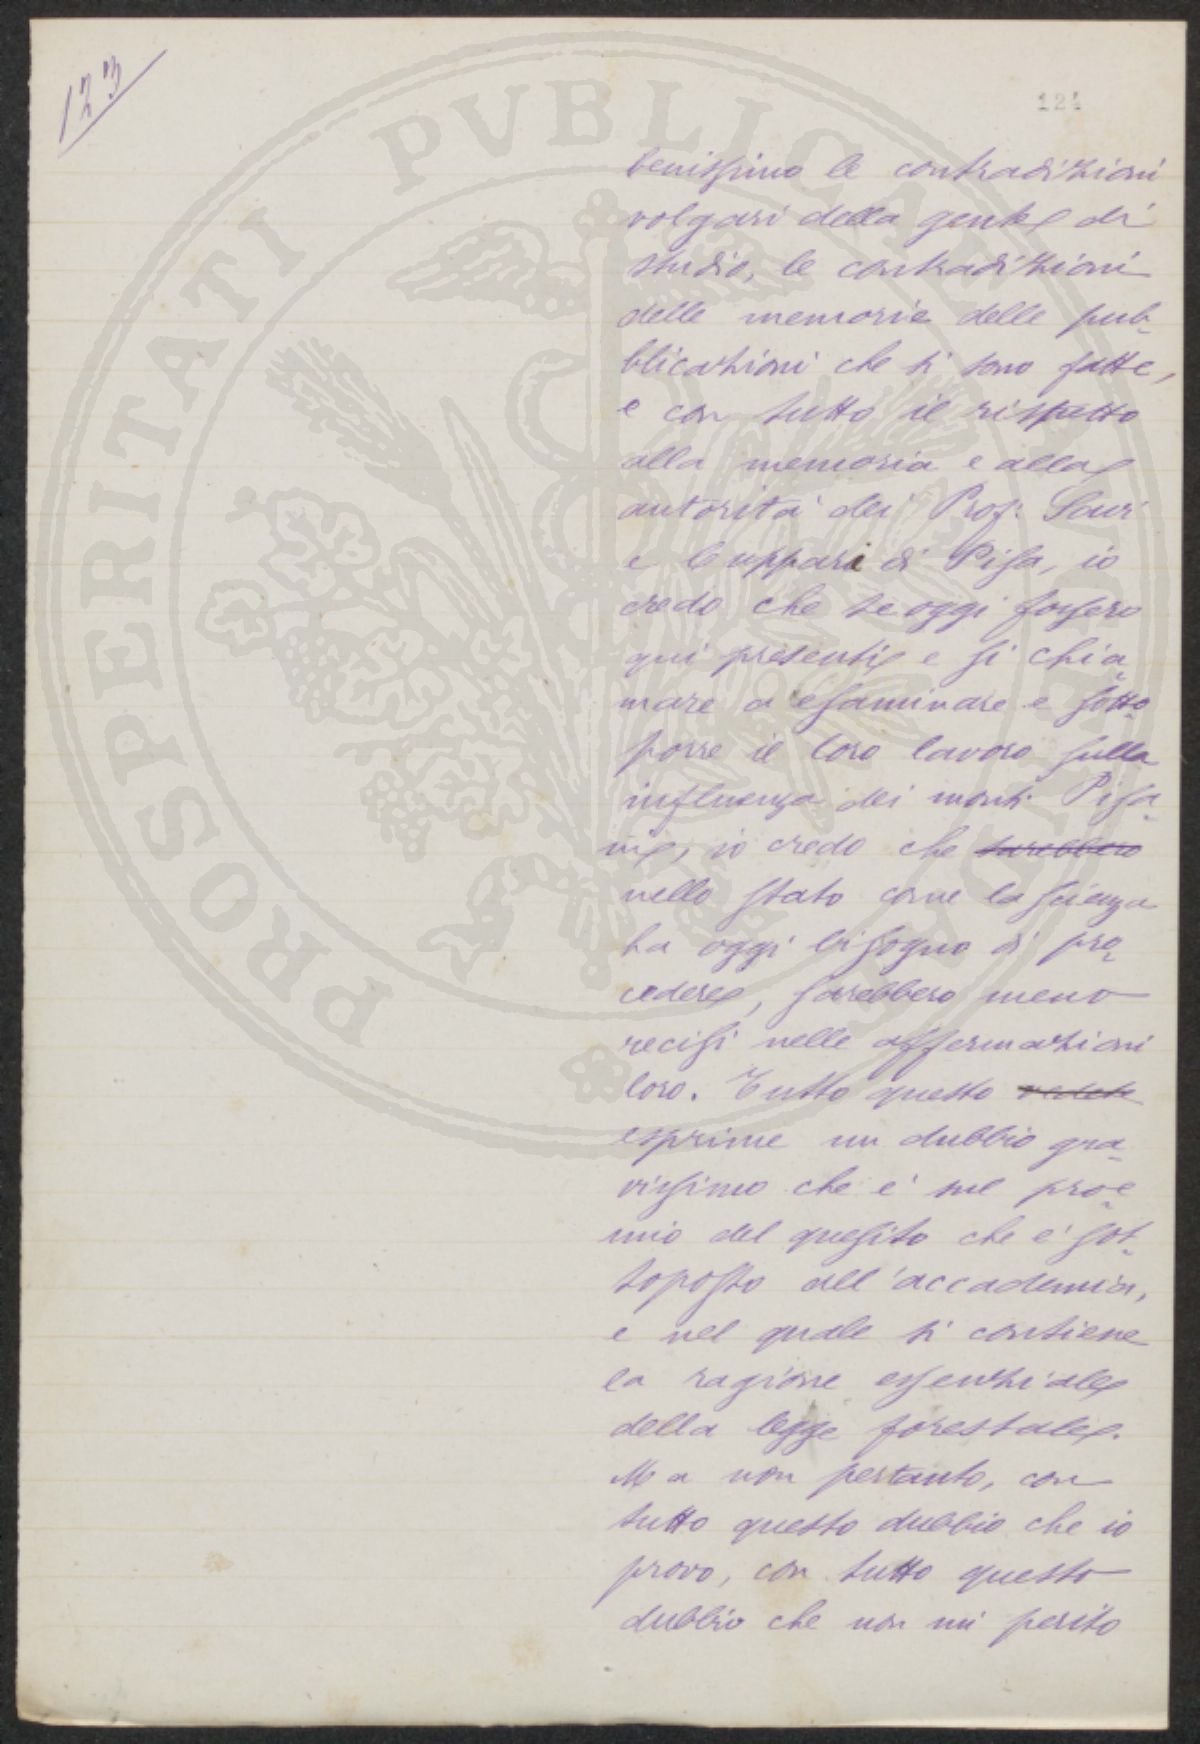 123
124
PROSPERITATI PVBLICAE
benissimo le contradizioni
volgari della gente di
studio, le contradizioni
delle memorie delle pub-
blicazioni che si sono fatte,
e con tutto il rispetto
alla memoria e alla
autorità dei Prof: Savi
e Cuppari di Pisa, io
credo che se oggi fossero
qui presenti e si chia-
mare a esaminare e sotto-
porre il loro lavoro sulla
influenza dei monti Pisa-
ni, io credo che sarebbero
nello stato come la scienza
ha oggi bisogno di pro-
cedere, sarebbero meno
recisi nelle affermazioni
loro. Tutto questo vedete
esprime un dubbio gra-
vissimo che e' sul proe-
mio del quesito che e' sot-
toposto all'accademia,
e nel quale si contiene
la ragione essenziale
della legge forestale.
Ma non pertanto, con
tutto questo dubbio che io
provo, con tutto questo
dubbio che non mi perito